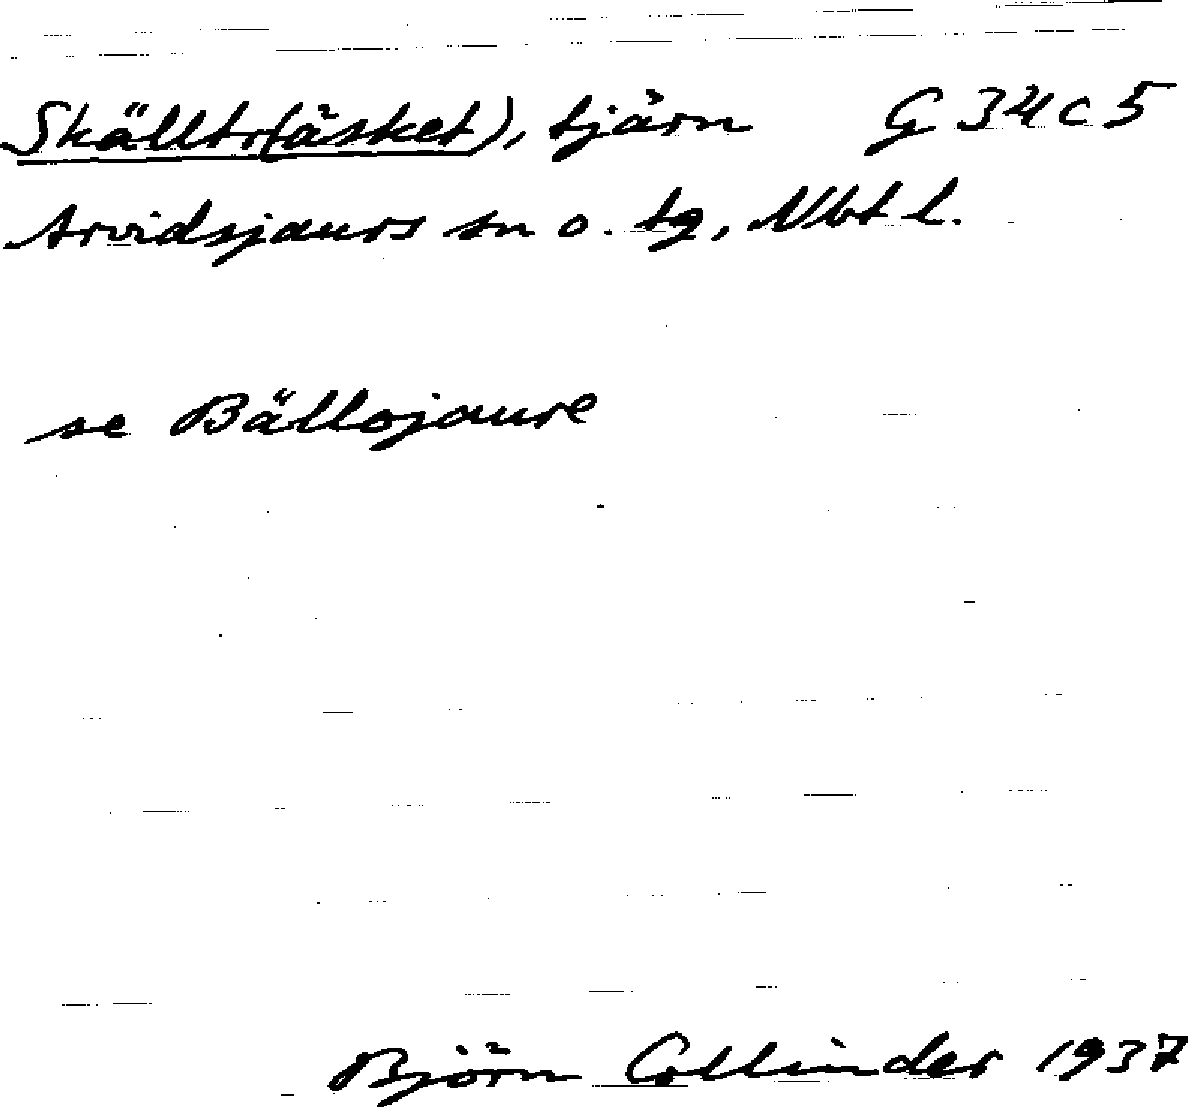 Skälltr(äsket), tjärn G 34 c 5
Arvidsjaurs sn o. tg, Nbt l.
se Bällojaure
Björn Collinder 1937